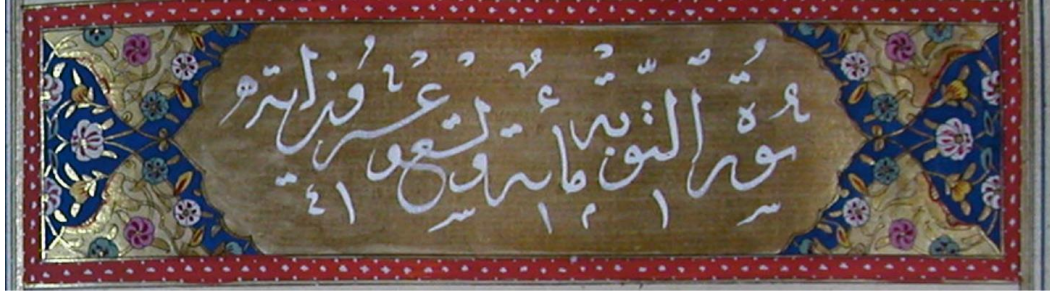 سورة التوبة مائة وتسع وعشرون آية